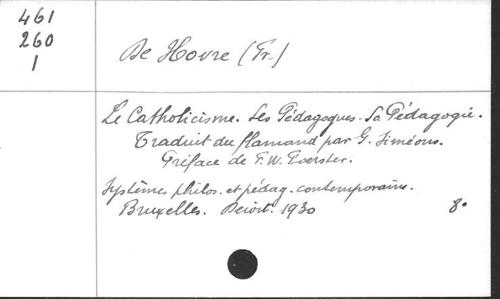 461
260
1
De Hovre (Fr.)
Le Catholicisme. Ses Pédagogues. Sa Pédagogie.
Traduit du flamand par G. Siméons.
Préface de F. W. Foerster.
Systèmes philos. et pédag. contemporains.
Bruxelles. Dewit. 1930 8°